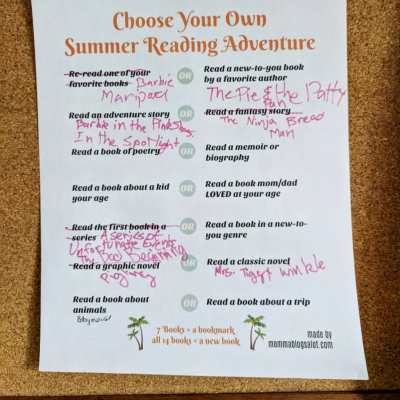 Choose Your Own
Summer Reading Adventure
Re-read one of your
favorite books Barbie
Maripael
OR
Read a new-to-you book
by a favorite author
The Pie & the Patty
Pan
Read an adventure story
Barbie in the Pink Shoes
In the Spotlight
OR
Read a fantasy story
The Ninja Bread
Man
Read a book of poetry
OR
Read a memoir or
biography
Read a book about a kid
your age
OR
Read a book mom/dad
LOVED at your age
Read the first book in a
series A series of
Unfortunate Events
The Bad Beginning
OR
Read a book in a new-to-
you genre
Read a graphic novel
OR
Read a classic novel
Mrs. Tiggy Winkle
Read a book about
animals
OR
Read a book about a trip
7 Books = a bookmark
all 14 books = a new book
made by
mommablogsalot.com